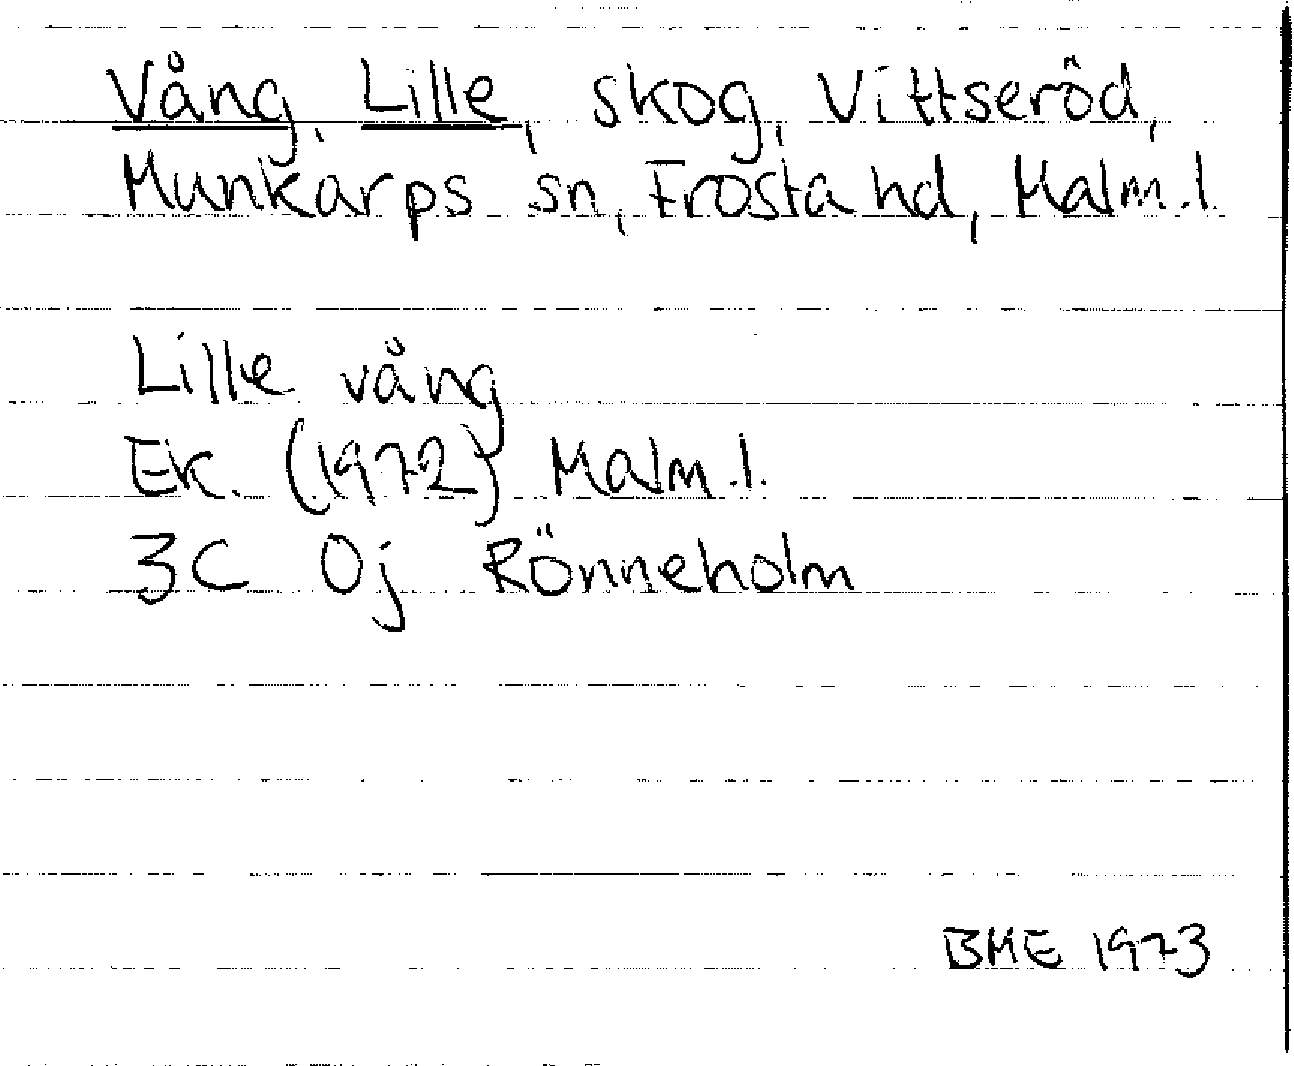 Vång, Lille, skog, Vittseröd,
Munkarps sn, Frosta hd, Malm.l.
Lille vång
Ek. (1972) Malm.l.
3C 0j Rönneholm
BME 1973